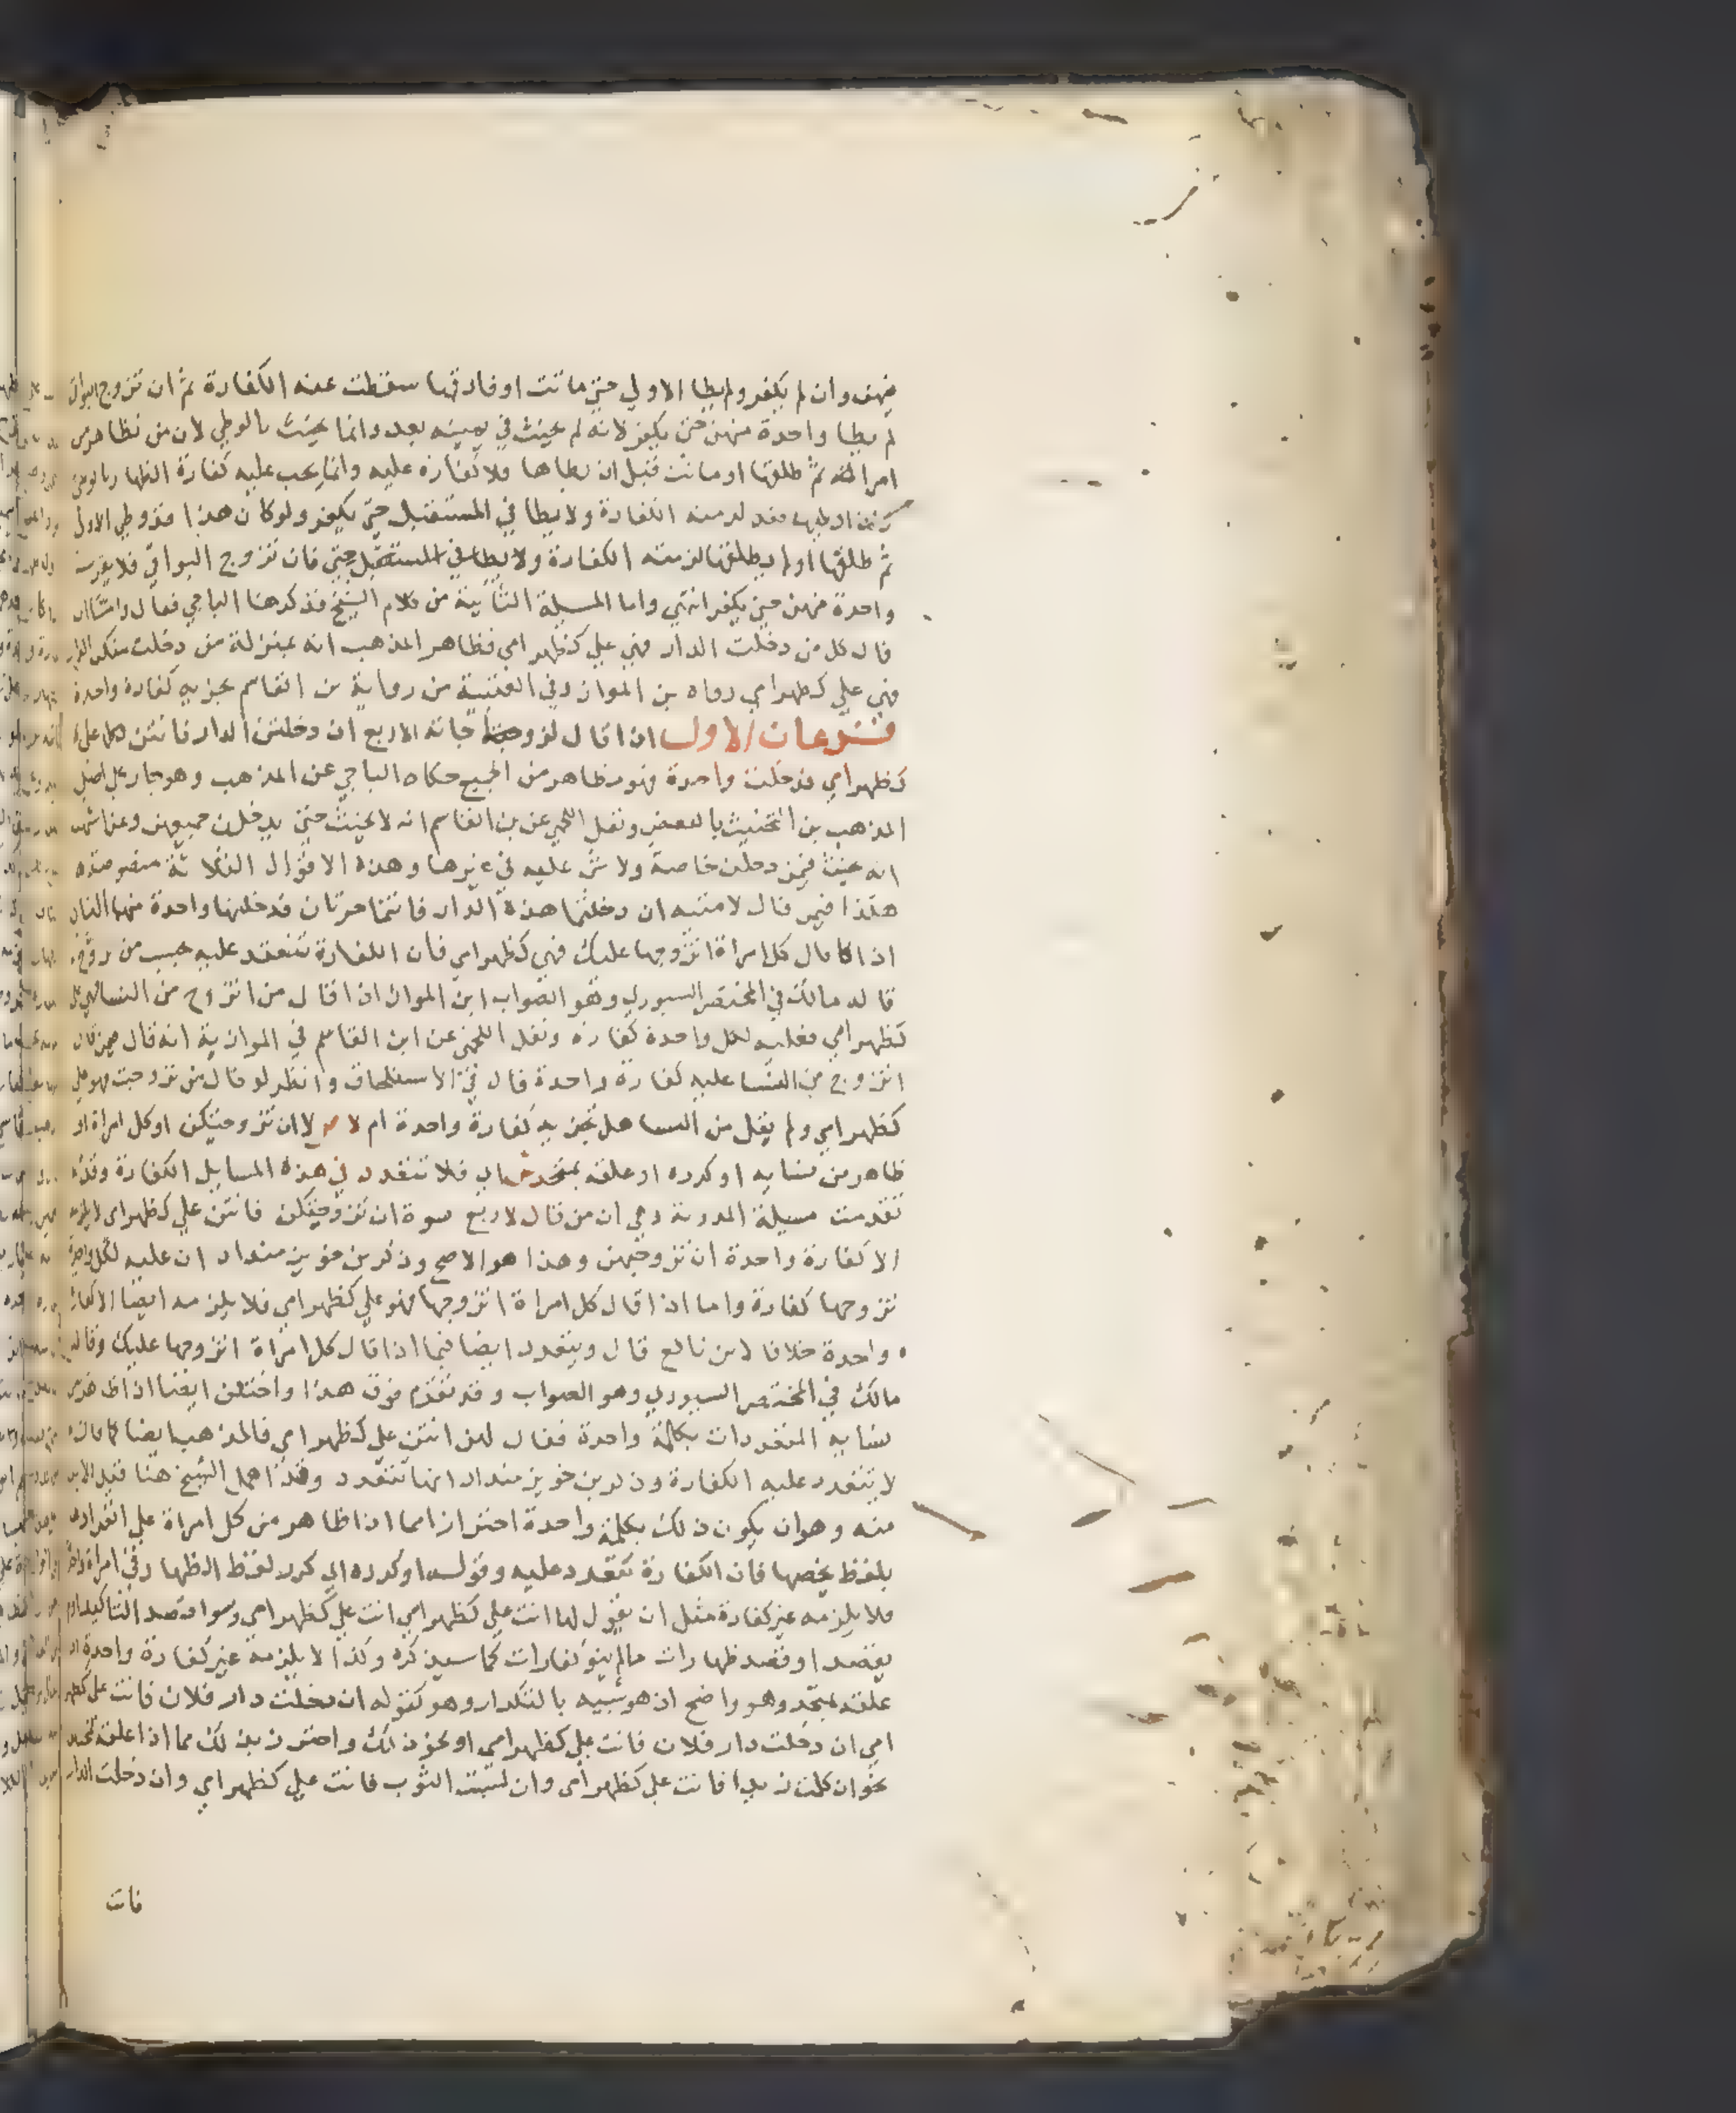 منهن وان لم يكفر ولم يطا الاولي حتي ماتت او فارقها سقطت عنه الكفارة ثم ان تزوج البواقي
لم يطا واحدة منهن حتي يكفر لانه لم يحنث في يمينه بعد وانما يحنث بالوطي لان من تظاهر من
امراته ثم طلقها او ماتت قبل ان يطاها فلا كفارة عليه وانما يجب عليه كفارة الظهار بالوطي
فقد لزمته الكفارة ولا يطا في المستقبل حتي يكفر ولو كان هذا قد وطي الاولي
ثم طلقها او لم يطلقها لزمته الكفارة ولا يطا في المستقبل حتي فان تزوج البواقي فلا يقرب
واحدة منهن حتي يكفر انتهي واما المسيلة الثانية من كلام الشيخ فذكرها الباجي فقال واما ان
قال كل من دخلت الدار فهي علي كظهر امي فظاهر المذهب انه بمنزلة من دخلت منكن الدار
فهي علي كظهر امي رواه بن المواز وفي العتبية من رواية بن القاسم يجزيه كفارة واحدة
فرعان الاول اذا قال لزوجاته الاربع ان دخلتن الدار فانتن كلكن علي
كظهر امي فدخلت واحدة فهو مظاهر من الجميع حكاه الباجي عن المذهب وهو جار علي اصل
المذهب من التحنيث بالبعض ونقل اللخمي عن بن القاسم انه لا يحنث حتي يدخلن جميعهن وعن اشهب
انه يحنث فيمن دخلت خاصة ولا شي عليه في غيرها وهذه الاقوال الثلاثة منصوصة
هكذا فيمن قال لامتيه ان دخلتما هذه الدار فانتما حرتان فدخلتها واحدة منهما الثاني
اذا قال كل امراة اتزوجها عليك فهي كظهر امي فان الكفارة تتعدد عليه بحسب من تزوج
قاله مالك في المختصر السيوري وهو الصواب ابن المواز اذا قال من اتزوج من النسا فهي علي
كظهر امي فعليه لكل واحدة كفارة ونقل اللخمي عن ابن القاسم في الموازية انه قال فيمن قال
اتزوج من النسا عليه كفارة واحدة قال في الاستلحاق وانظر لو قال من تزوجت فهو علي
كظهر امي ولم يقل من النسا هل تجزيه كفارة واحدة ام لا ص لا ان تزوجتكن او كل امراة او
ظاهر من نسايه او كرره او علقه بمتحد ش اي فلا تتعدد في هذه المسايل الكفارة وقد
تقدمت مسيلة المدونة وهي ان من قال لاربع نسوة ان تزوجتكن فانتن علي كظهر امي لا يلزمه
الا كفارة واحدة ان تزوجهن وهذا هو الاصح وذكر بن خويز منداد ان عليه لكل واحدة
تزوجها كفارة واما اذا قال كل امراة اتزوجها فهو علي كظهر امي فلا يلزمه ايضا الا كفارة
واحدة خلافا لابن نافع قال ويتعدد ايضا فيما اذا قال كل امراة اتزوجها عليك وقاله
مالك في المختصر السيوري وهو الصواب وقد تقدم فوق هذا واختلف ايضا اذا ظاهر من
نسايه المتعددات بكلمة واحدة فقال لهن انتن علي كظهر امي فالمذهب ايضا كما قال
لا تتعدد عليه الكفارة وذكر بن خويز منداد انها تتعدد وقد اهمل الشيخ هنا قيدا لا بد
منه وهو ان يكون ذلك بكلمة واحدة احترازا مما اذا ظاهر من كل امراة علي انفرادها
بلفظ يخصها فان الكفارة تتعدد عليه وقوله او كرره اي كرر لفظ الظهار في امراة واحدة
فلا يلزمه غير كفارة مثل ان يقول لها انت علي كظهر امي انت علي كظهر امي وسوا قصد التاكيد او لم
يقصد او قصد ظهارات ما لم ينو كفارات كما سيذكره وكذا لا يلزمه غير كفارة واحدة اذا
علقه بمتحد وهو واضح اذ هو شبيه بالتكرار وهو كقوله ان دخلت دار فلان فانت علي كظهر
امي ان دخلت دار فلان فانت علي كظهر امي او نحو ذلك واحترز بذلك مما اذا علقه بمتعدد
نحو ان كلمت زيدا فانت علي كظهر امي وان لبست الثوب فانت علي كظهر امي وان دخلت الدار
فانت